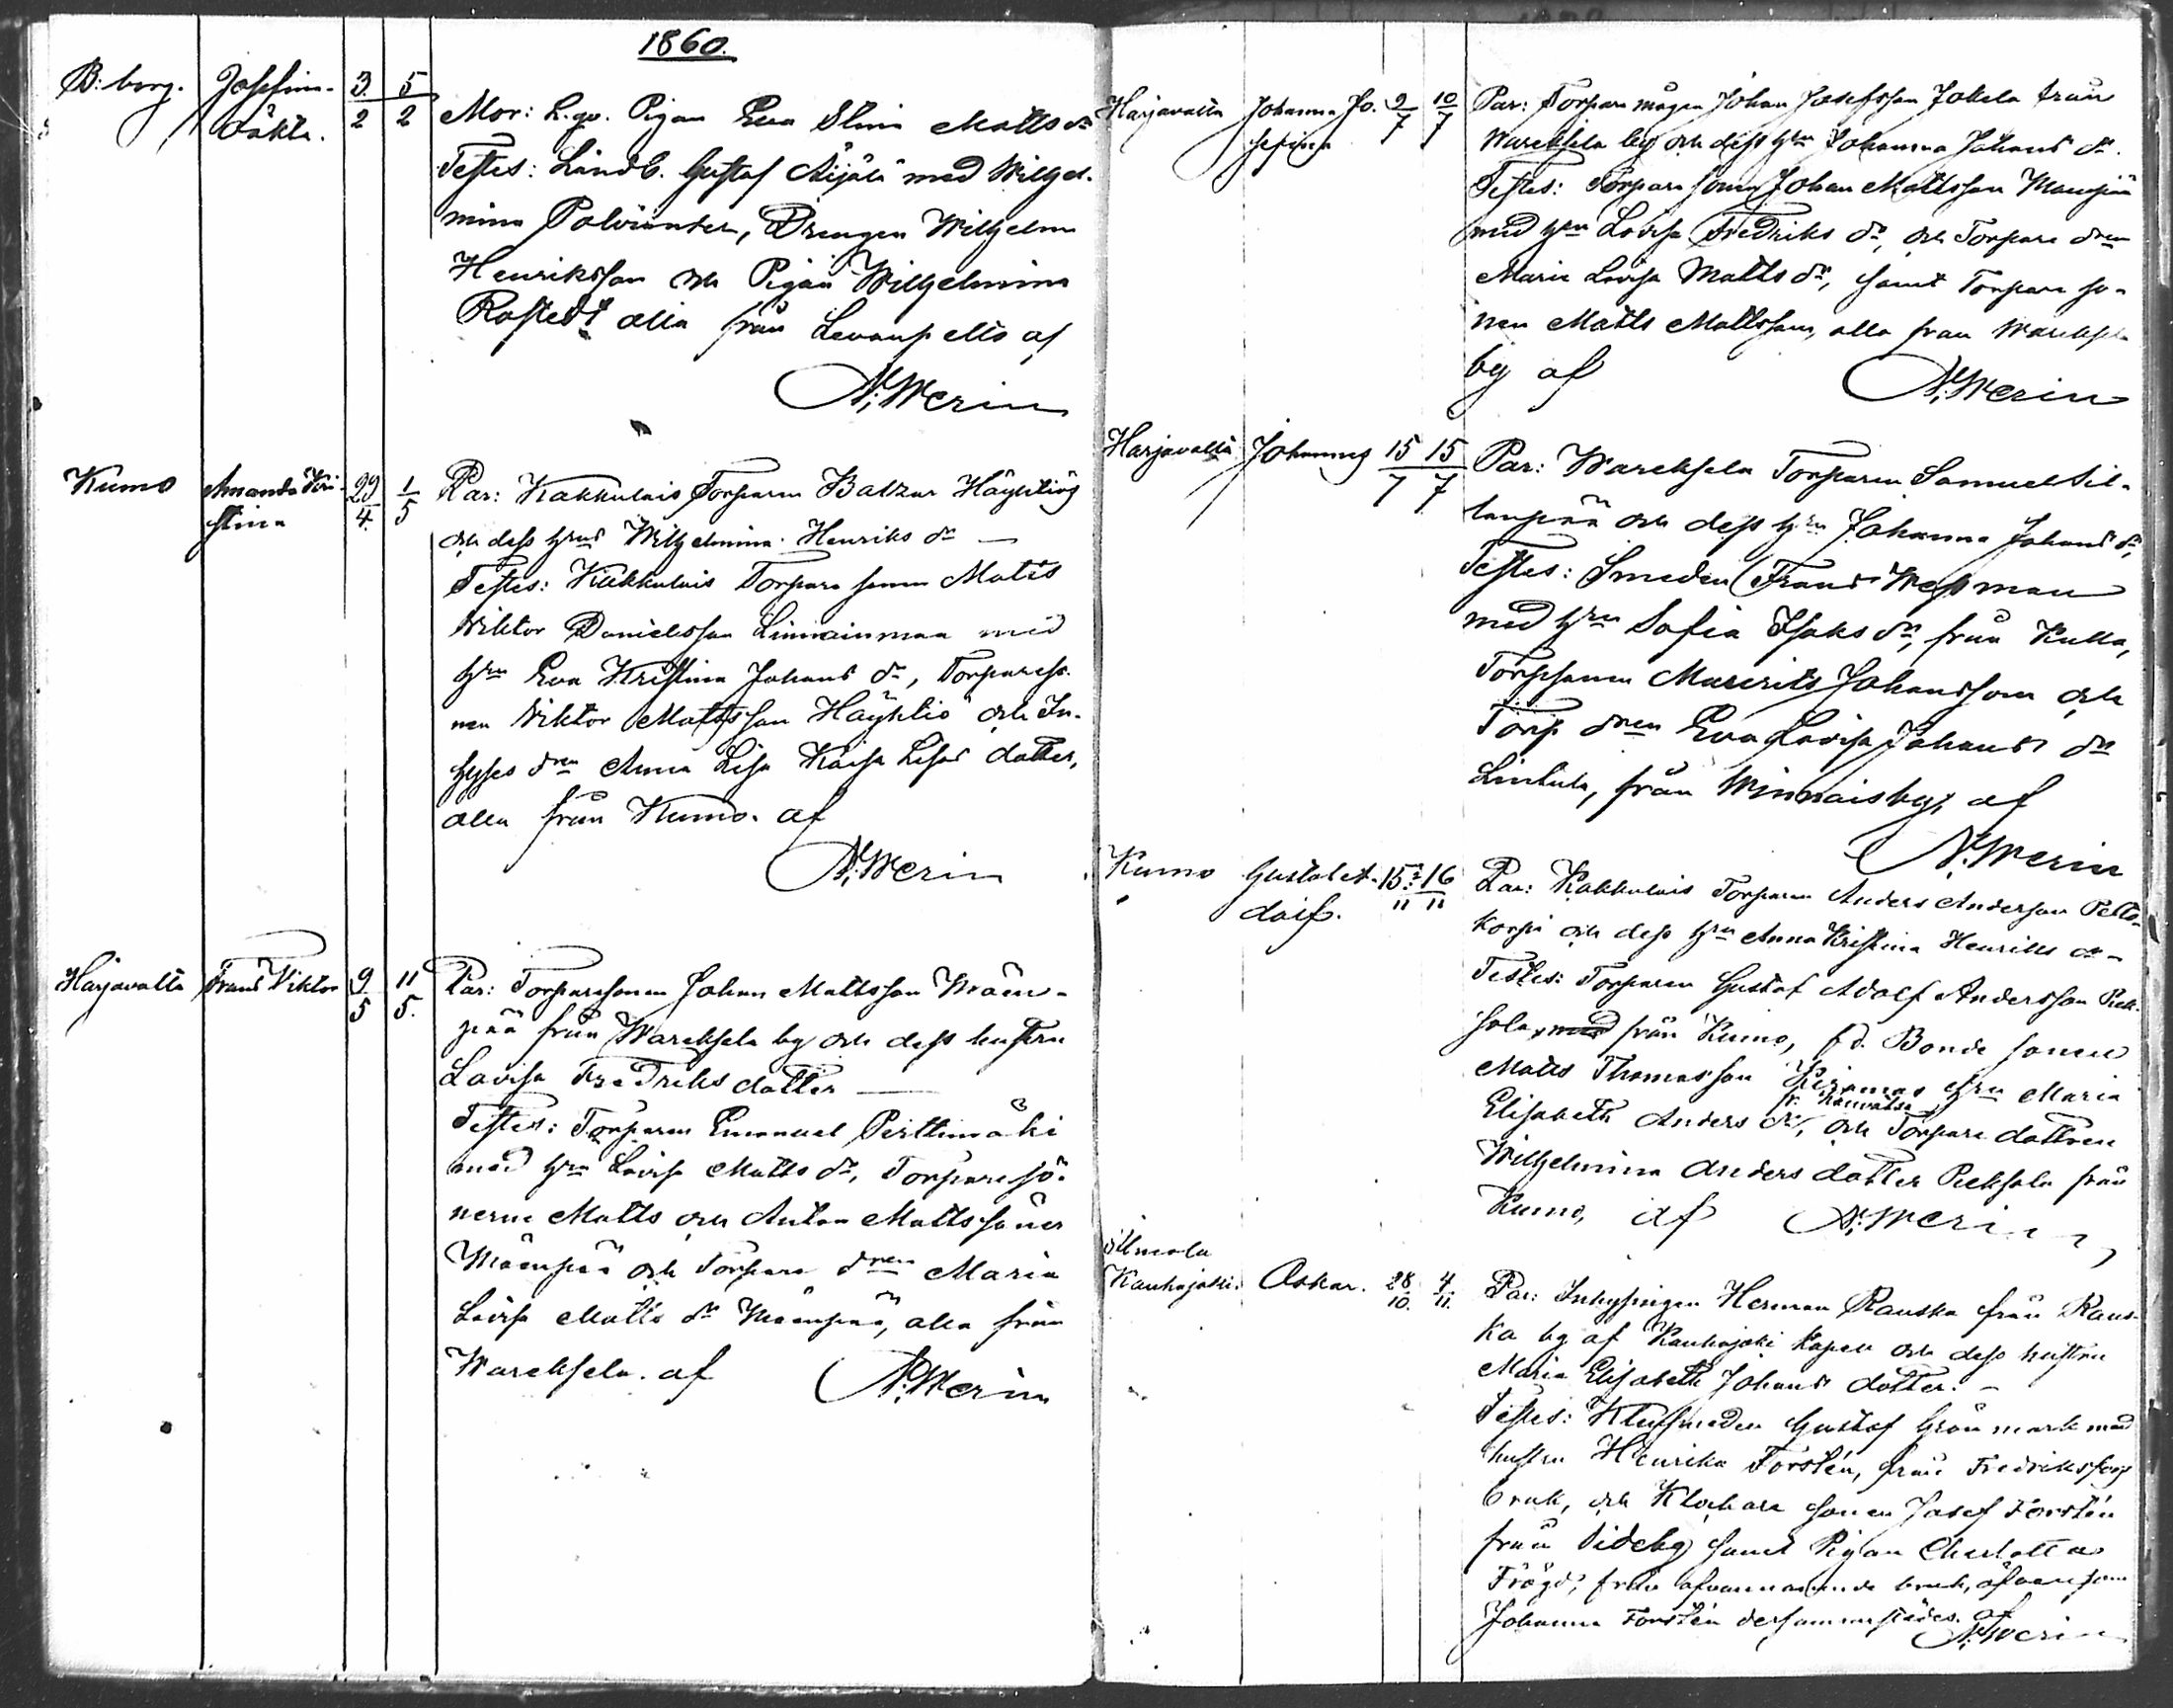 1860.
B:borg. Josefina- 3 5
oäkta. 2 2 Mor: L.qv. Pigan Eva Stina Mattsdr
Testes: Landb. Gustaf Äijälä med Wilhel-
mina Polviander, Drengen Wilhelm
Henriksson och Pigan Wilhelmina
Rostedt alla från af
N. Merin
Kumo Amanda Kri- 29 1 Par: Kakkulais Torparen Baltzar Häyhtiö
stina 4. 5
och dess hru Wilhelmina Henriks dr —
Testes: Kakkulais Torpare sonen Matts
Viktor Danielsson Linnainmaa med
hru Eva Kristina Johans dr, Torpareso-
nen Viktor Mattsson Häyhtiö och In-
hyses dren Anna Lisa Kaisa Lisas dotter,
alla från Kumo. af
N. Merin
Harjavalta Frans Viktor 9 11 Par: Torparesonen Johan Mattsson Mäen-
5 5. pää från Wareksela by och dess hustru
Lovisa Fredriks dotter —
Testes: Torparen Emanuel Perttimäki
med hru Lovisa Matts dr, Torparesö-
nerne Matts och Anton Mattssöner
Mäenpää och Torpare dren Maria
Lovisa Matts dr Mäenpää, alla från
Wareksela. af N. Merin
Harjavalta Johanna Jo- 9 10 Par: Torpare mågen Johan Josefsson Jokela från
sefina 7 7 Wareksela by och dess hru Johanna Johans dr.
Testes: Torpare sonen Johan Mattsson Mäenpää
med hru Lovisa Fredriks dr, och Torpare dren
Maria Lovisa Matts dr, samt Torpare so-
nen Matts Mattsson, alla från Wareksela
by af N. Merin
Harjavalta Johannes 15 15 Par: Wareksela Torparen Samuel Sil-
7 7
lanpää och dess hru Johanna Johans dr,
Testes: Smeden Frans Wessman
med hru Sofia Isaks dr, från Kulla,
Torpsonen Maurits Johansson och
Torp dren Eva Lovisa Johans dr
Lintula, från Winnais by, af
N. Merin
Kumo Gustaf A- 15 16 Par: Kakkulais Torparen Anders Andersson Pelto-
dolf. 11 11
korpi och dess hru Anna Kristina Henriks dr –
Testes: Torparen Gustaf Adolf Andersson Piek-
sola, med från Kumo, f.d. Bonde sonen
Matts Thomasson hru Maria
Elisabeth Anders dr, och Torpare dottren
Wilhelmina Anders dotter Pieksola från
Kumo, af N. Merin
Ilmola
Kauhajoki. Oskar. 28 4 Par: Inhysingen Herman Rauska från Raus-
10. 11.
ka by af Kauhajoki kapell och dess hustru
Maria Elisabeth Johans dotter. –
Testes: Klensmeden Gustaf Grönmark med
hustru Henrika Forstén, från Fredriksfors
bruk, och Klockare sonen Josef Forstén
från samt Pigan Charlotta
Frögd, från bruk, äfvensom
Johanna Forstén dersammastädes. af
N. Merin